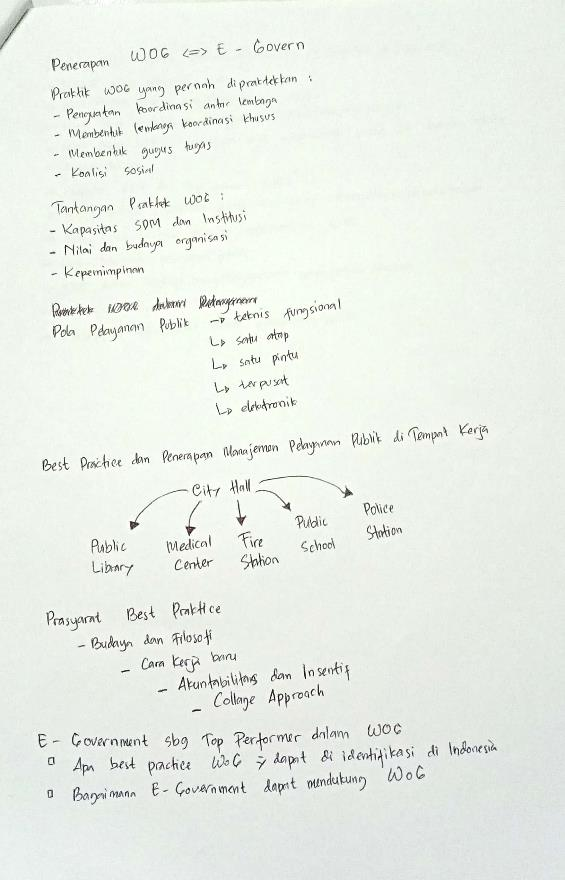 Penerapan WOG <=> E - Govern
Praktik WOG yang pernah dipraktekkan :
- Penguatan koordinasi antar lembaga
- Membentuk lembaga koordinasi khusus
- Membentuk gugus tugas
- Koalisi sosial
Tantangan Praktek WOG :
- Kapasitas SDM dan Institusi
- Nilai dan budaya organisasi
- Kepemimpinan
Pola Pelayanan Publik → teknis fungsional
↳ satu atap
↳ satu pintu
↳ terpusat
↳ elektronik
Best Practice dan Penerapan Manajemen Pelayanan Publik di Tempat Kerja
City Hall
Public Library
Medical Center
Fire Station
Public School
Police Station
Prasyarat Best Praktice
- Budaya dan Filosofi
- Cara Kerja baru
- Akuntabilitas dan Insentif
- Collage Approach
E - Government sbg Top Performer dalam WOG
▫ Apa best practice WoG → dapat di identifikasi di Indonesia
▫ Bagaimana E-Government dapat mendukung WoG